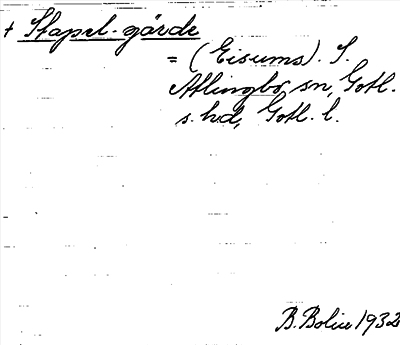 + Stapel-gärde
= (Eisums). S.
Atlingbo sn, Gotl.
s. hd, Gotl. l.
B. Bolin 1932